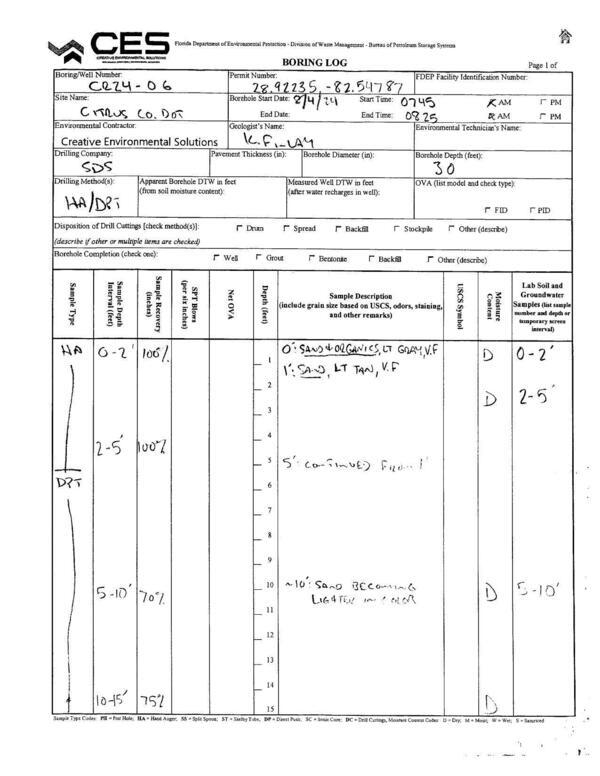 CES
CREATIVE ENVIRONMENTAL SOLUTIONS
Florida Department of Environmental Protection - Division of Waste Management - Bureau of Petroleum Storage Systems
BORING LOG
Page 1 of
Boring/Well Number: Permit Number: FDEP Facility Identification Number:
CR24-06 28.92235, -82.54787
Site Name: Borehole Start Date: 8/4/24 Start Time: 0745 AM PM
CITRUS CO. DOT End Date: End Time: 0825 AM PM
Environmental Contractor: Geologist's Name: Environmental Technician's Name:
Creative Environmental Solutions
Drilling Company: Pavement Thickness (in): Borehole Diameter (in): Borehole Depth (feet):
SDS 30
Drilling Method(s): Apparent Borehole DTW in feet Measured Well DTW in feet OVA (list model and check type):
(from soil moisture content): (after water recharges in well):
HA/DPT FID PID
Disposition of Drill Cuttings [check method(s)]: Drum Spread Backfill Stockpile Other (describe)
(describe if other or multiple items are checked)
Borehole Completion (check one): Well Grout Bentonite Backfill Other (describe)
Sample Type
Sample Depth Interval (feet)
Sample Recovery (inches)
SPT Blows (per six inches)
Net OVA
Depth (feet)
Sample Description
(include grain size based on USCS, odors, staining,
and other remarks)
USCS Symbol
Moisture Content
Lab Soil and
Groundwater
Samples (list sample
number and depth or
temporary screen
interval)
HA 0-2' 100% 0': SAND & ORGANICS, LT GRAY, V.F D 0-2'
1
1': SAND, LT TAN, V.F
2
D 2-5'
3
4
2-5' 100%
5 5': CONTINUED FROM 1'
DPT 6
7
8
9
5-10' 70% 10 ~10': SAND BECOMING D 5-10'
LIGHTER IN COLOR
11
12
13
14
10-15' 75% D
15
Sample Type Codes: PH = Post Hole; HA = Hand Auger; SS = Split Spoon; ST = Shelby Tube; DP = Direct Push; SC = Sonic Core; DC = Drill Cuttings, Moisture Content Codes: D = Dry; M = Moist; W = Wet; S = Saturated